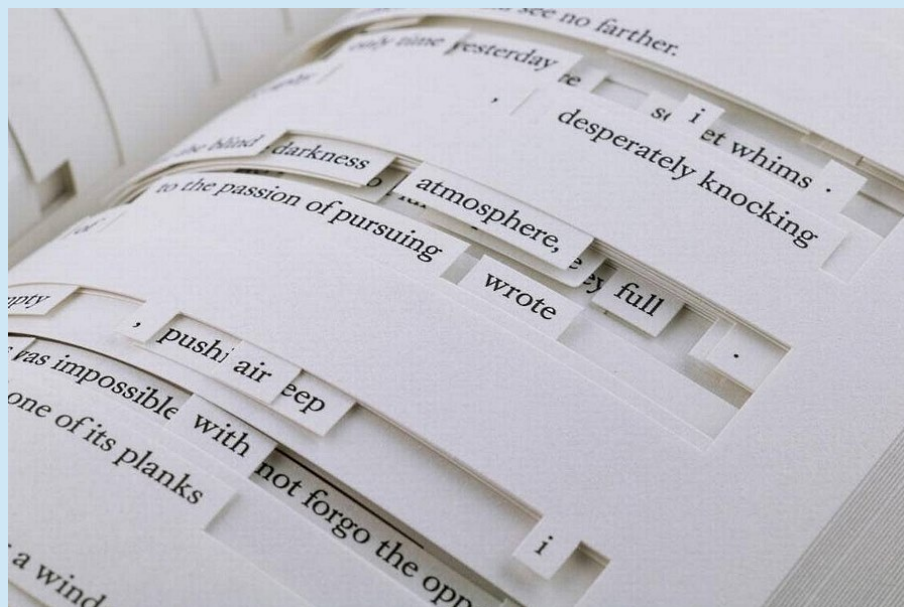 see no farther.
only time yesterday
i
et whims .
, desperately knocking
blind , darkness
atmosphere,
to the passion of pursuing
wrote full .
, push air eep
was impossible with not forgo the opp
one of its planks
i
a wind